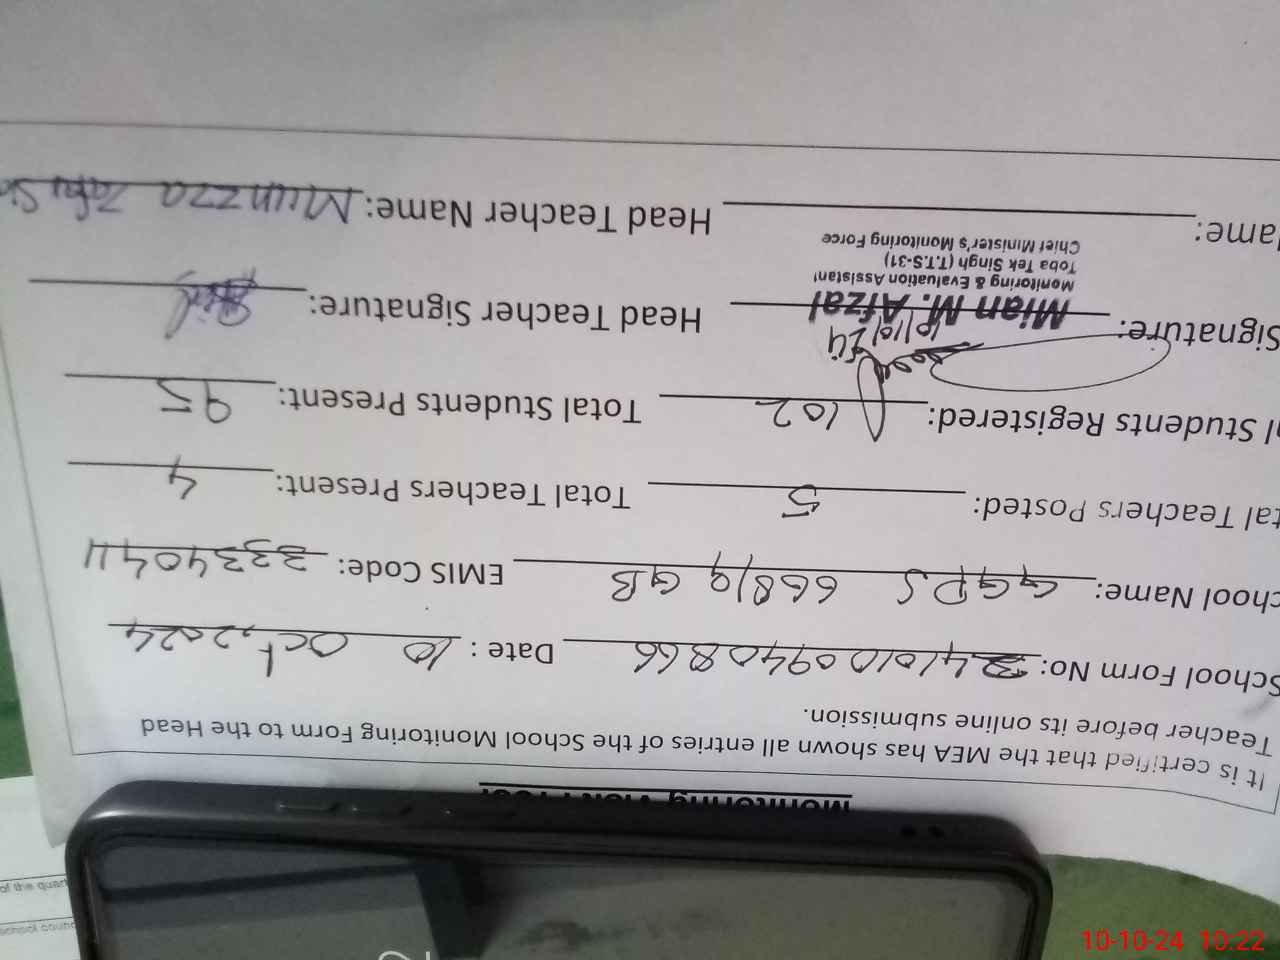 It is certified that the MEA has shown all entries of the School Monitoring Form to the Head
Teacher before its online submission.
School Form No: 241010940866 Date : 10 Oct, 2024
chool Name: GGPS 668/9 GB EMIS Code: 33340411
tal Teachers Posted: 5 Total Teachers Present: 4
l Students Registered: 102 Total Students Present: 95
Signature: 10/10/24 Head Teacher Signature:
Mian M. Afzal
Monitoring & Evaluation Assistant
Toba Tek Singh (T.T.S-31)
Chief Minister's Monitoring Force
ame: Head Teacher Name: Munzza
of the quart
school counc
10-10-24 10:22